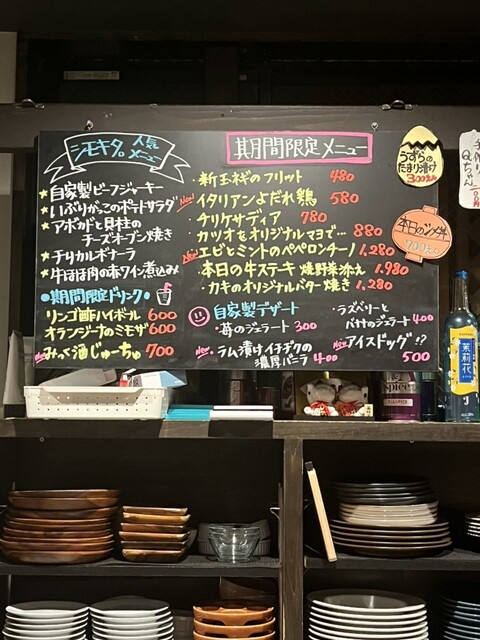 シモキタ。人気メニュー
★自家製ビーフジャーキー
★いぶりがっこのポテトサラダ
★アボカドと貝柱の
チーズオーブン焼き
★チリカルボナーラ
★牛ほほ肉の赤ワイン煮込み
●期間限定ドリンク
リンゴ酢ハイボール 600
オランジーナのミモザ 600
New みっく酒じゅーちゅ 700
期間限定メニュー
・新玉ネギのフリット 480
New イタリアンよだれ鶏 580
・チリケサディア 780
・カツオをオリジナルマヨで… 880
New エビとミントのペペロンチーノ 1,280
・本日の牛ステーキ 焼野菜添え 1,980
・カキのオリジナルバター焼き 1,280
自家製デザート
・苺のジェラート 300
New ラム漬けイチヂクの
濃厚バニラ 400
・ラズベリーと
バナナのジェラート 400
New アイスドッグ!? 500
うずらの
たまり漬け
300
本日のツメ丼
Qちゃん
茉莉花
Spice